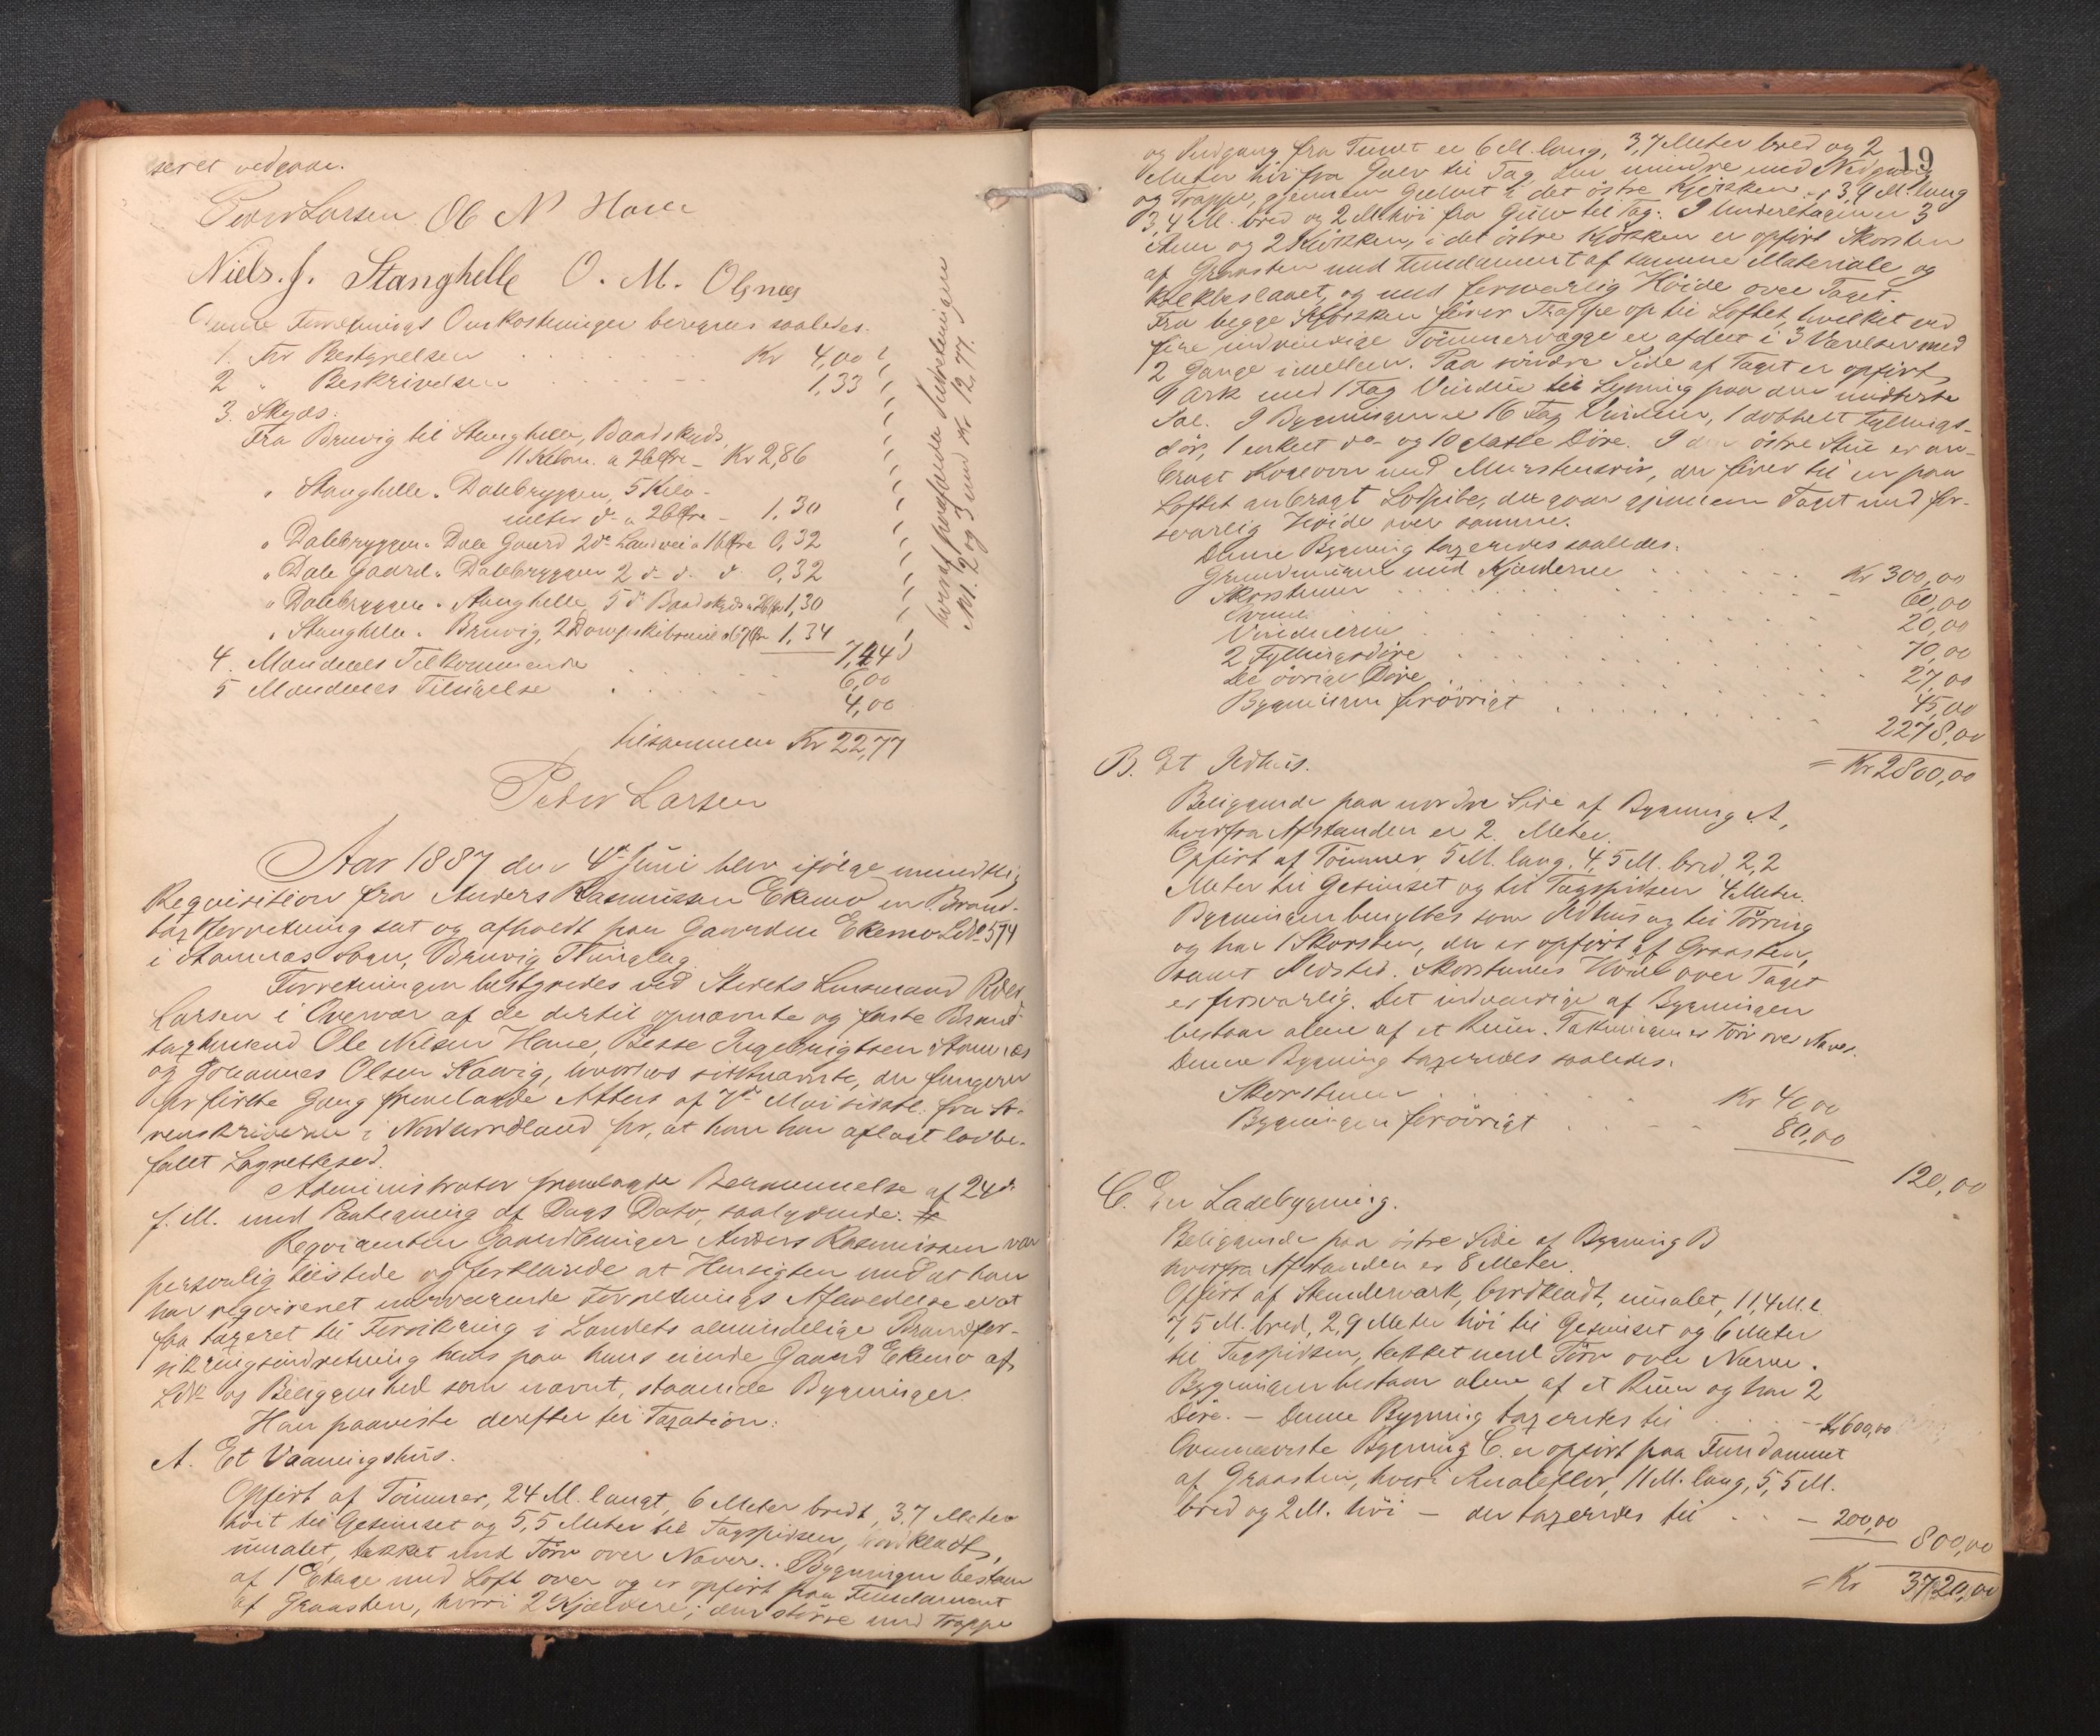 seret vedgaar.
Peder Larsen Ob N Hane
Niels. J. Stanghelle O. M. Olsnes
Denne Forretnings Omkostninger beregnes saaledes.
1. For Bestyrelsen . . . . . Kr 4,00
2 " Beskrivelsen . . . . . 1,33
3. Skyds:
Fra Bruvig til Stanghelle, Baadskyds,
11 Kilom. a 26 Øre - Kr 2,86
" Stanghelle - Dalebryggen, 5 Kilo-
meter do a 26 Øre - 1,30
" Dalebryggen - Dale Gaard 2 do Landvei a 16 Øre 0,32
" Dale Gaard - Dalebryggen 2 d- d. d 0,32
" Dalebryggen - Stanghelle, 5 d. Baadskyds a 26 Øre 1,30
" Stanghelle - Bruvig, 2 Dampskibsmiil a 67 Øre 1,34
7,44
4. Mændenes Tilkommende 6,00
5 Mændenes Tilsigelse . . . . . 4,00
tilsammen Kr 22,77
hvoraf paafaldende
No 1. 2 og 3 med Kr 12,77.
Peder Larsen
Aar 1887 den 4de Juni blev ifølge mundtlig
Reqvisition fra Anders Rasmussen Ekemo en Brand-
taxtforretning sat og afholdt paa Gaarden Ekemo LNo 574
i Stamnæs Sogn, Bruvig Thinglag.
Forretningen bestyredes ved Stedets Lensmand Peder
Larsen i Overvær af de dertil opnævnte og faste Brand-
taxtmænd Ole Nilsen Hane, Besse Ingebrigtsen Stamnes
og Johannes Olsen Kaavig, hvoraf sidstnævnte, der fungerer
for første Gang fremlagde Attest af 7de Mai sidstl. fra So-
renskriveren i Nordhordland for, at han har aflagt lovbe-
falet Lagrettesed.
Administrator fremlagde Berammelse af 24de
f. M. med Paategning af Dags Dato, saalydende: #
Reqvirenten Gaardbruger Anders Rasmussen var
personlig tilstede og forklarede at Hensigten med at han
har reqvireret nærværende Forretnings Afholdelse er at
faa taxeret til Forsikring i Landets almindelige Brandfor-
sikringsindretning hans paa hans eiende Gaard Ekemo af
LNo og Beliggenhed som nævnt, staaende Bygninger.
Han paaviste derefter til Taxation:
A. Et Vaaningshus.
Opført af Tømmer, 24 M. langt, 6 Meter bredt, 3,7 Meter
høit til Gesimset og 5,5 Meter til Tagspidsen, bordklædt,
umalet, tækket med Törv over Næver. Bygningen bestaar
af 1 Etage med Loft over og er opført paa Fundament
af Graasten, hvori 2 Kjældere; den større med Trappe
19
og Nedgang fra Tunet er 6 M. lang, 3,7 Meter bred og 2
Meter høi fra Gulv til Tag den mindre med Nedgang
og Trappe, gjennem Gulvet i det östre Kjøkken - 3,9 M. lang
3,4 M. bred og 2 M. høi fra Gulv til Tag. I Underetagen er 3
Stuer og 2 Kjøkken, i det östre Kjøkken er opført Skorsten
af Graasten med Fundament af samme Materiale og
Kalkbeslaaet, og med forsvarlig Høide over Taget.
Fra begge Kjøkken fører Trappe op til Loftet, hvilket ved
fire indvendige Tømmervægge er afdelt i 3 Værelser med
2 Gange imellem. Paa søndre Side af Taget er opført
1 Ark med 1 Fag Vindue til Lysning paa den midterste
Sal. I Bygningen er 16 Fag Vinduer, 1 dobbelt Fyllings-
dör, 1 enkelt do og 10 glatte Döre. I den östre Stue er an-
bragt Kakkelovn med Murstensrör, der fører til en paa
Loftet anbragt Lodpibe, der gaar gjennem Taget med for-
svarlig Høide over samme.
Denne Bygning taxeredes saaledes:
Grundmuren med Kjælderne . . . . . Kr 300,00
Skorstenen . . . . . 60,00
Ovnen . . . . . 20,00
Vinduerne . . . . . 70,00
2 Fyllingsdöre . . . . . 27,00
De övrige Döre . . . . . 45,00
Bygningen forøvrigt . . . . . 2278,00
= Kr 2800,00
B. Et Ildhus.
Beliggende paa nordre Side af Bygning A,
hvorfra Afstanden er 2 Meter.
Opført af Tömmer, 5 M. lang, 4,5 M. bred, 2,2
Meter til Gesimset og til Tagspidsen 4 Meter.
Bygningen benyttes som Ildhus og til Törring
og har 1 Skorsten, der er opført af Graasten,
samt Ildsted. Skorstenens Höide over Taget
er forsvarlig. Det indvendige af Bygningen
bestaar alene af et Rum. Tækningen er Törv over Næver.
Denne Bygning taxeredes saaledes:
Skorstenen . . . . . Kr 40,00
Bygningen forøvrigt . . . . . 80,00
120,00
C. En Ladebygning.
Beliggende paa östre Side af Bygning B
hvorfra Afstanden er 8 Meter.
Opført af Stendervark, bordklædt, umalet, 11,4 M. l.
7,5 M. bred, 2,9 Meter høi til Gesimset og 6 Meter
til Tagspidsen, tækket med Törv over Næver.
Bygningen bestaar alene af et Rum og har 2
Döre. - Denne Bygning taxeredes til . . . - Kr 600,00
Ovennævnte Bygning C. er opført paa Fundament
af Graasten, hvori Smaleflør, 11 M. lang, 5,5 M.
bred og 2 M. høi - der taxeredes til . . - 200,00
800,00
= Kr 3720,00